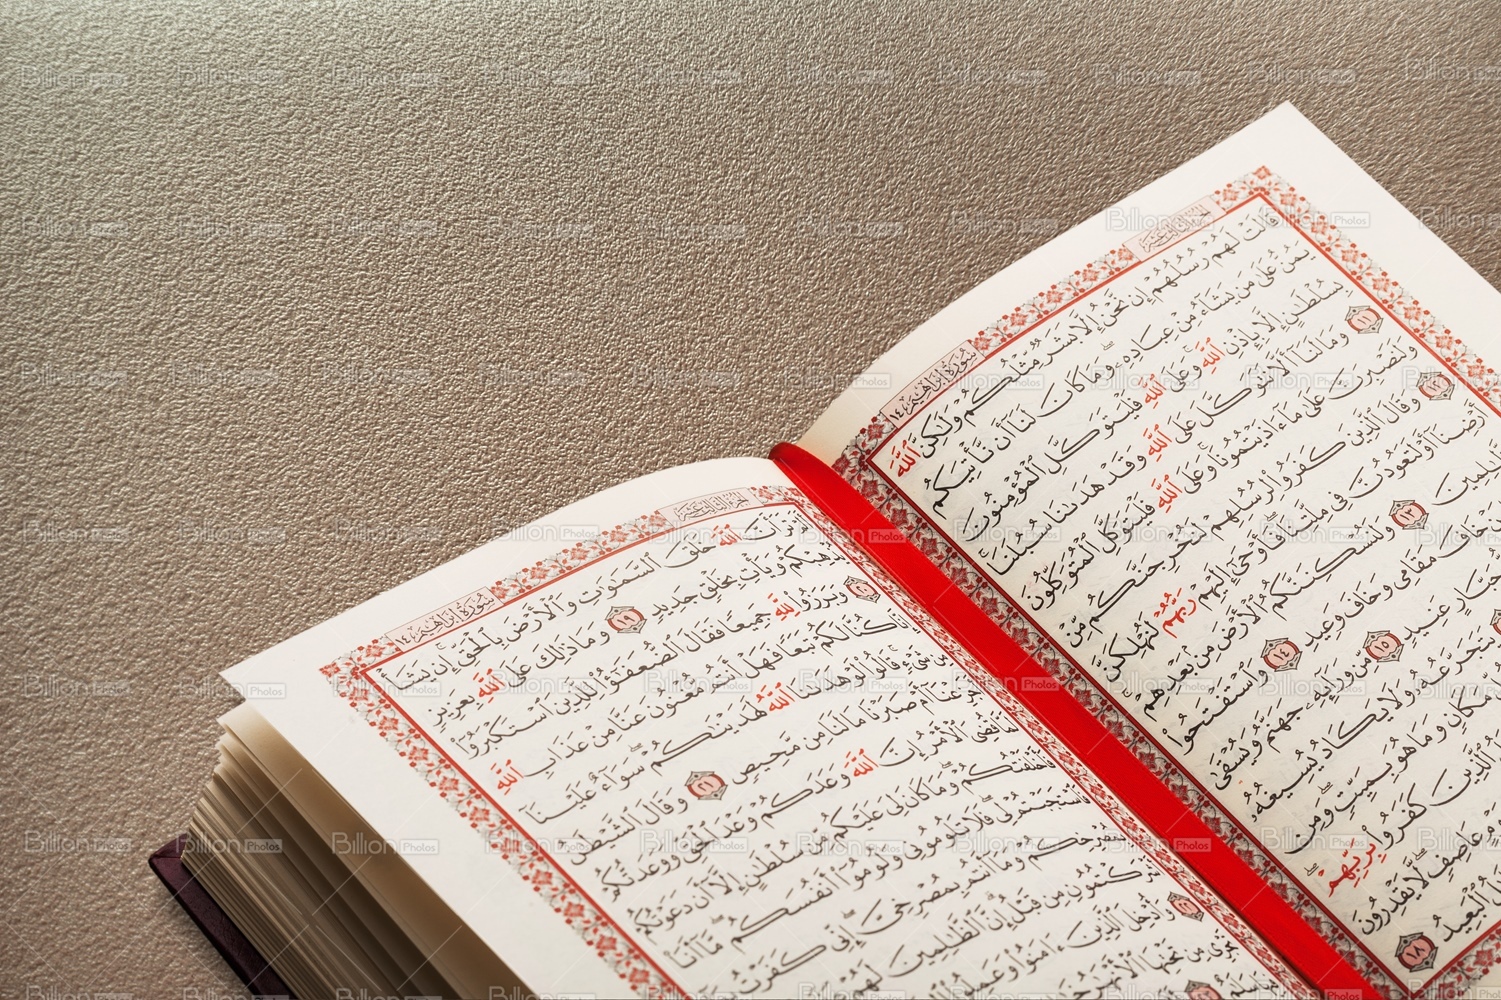 الجزء الثالث عشر
سورة إبراهيم ١٤
قَالَتْ لَهُمْ رُسُلُهُمْ إِن نَّحْنُ إِلَّا بَشَرٌ مِّثْلُكُمْ وَلَٰكِنَّ ٱللَّهَ
يَمُنُّ عَلَىٰ مَن يَشَآءُ مِنْ عِبَادِهِۦ وَمَا كَانَ لَنَآ أَن نَّأْتِيَكُم
بِسُلْطَٰنٍ إِلَّا بِإِذْنِ ٱللَّهِ وَعَلَى ٱللَّهِ فَلْيَتَوَكَّلِ ٱلْمُؤْمِنُونَ
١١ وَمَا لَنَآ أَلَّا نَتَوَكَّلَ عَلَى ٱللَّهِ وَقَدْ هَدَىٰنَا سُبُلَنَا
وَلَنَصْبِرَنَّ عَلَىٰ مَآ ءَاذَيْتُمُونَا وَعَلَى ٱللَّهِ فَلْيَتَوَكَّلِ ٱلْمُتَوَكِّلُونَ
١٢ وَقَالَ ٱلَّذِينَ كَفَرُوا۟ لِرُسُلِهِمْ لَنُخْرِجَنَّكُم مِّنْ
أَرْضِنَآ أَوْ لَتَعُودُنَّ فِى مِلَّتِنَا فَأَوْحَىٰٓ إِلَيْهِمْ رَبُّهُمْ لَنُهْلِكَنَّ
١٣ وَلَنُسْكِنَنَّكُمُ ٱلْأَرْضَ مِنۢ بَعْدِهِمْ
خَافَ مَقَامِى وَخَافَ وَعِيدِ ١٤ وَٱسْتَفْتَحُوا۟
عَنِيدٍ ١٥ مِّن وَرَآئِهِۦ جَهَنَّمُ وَيُسْقَىٰ
يَتَجَرَّعُهُۥ وَلَا يَكَادُ يُسِيغُهُۥ
مَكَانٍ وَمَا هُوَ بِمَيِّتٍ وَمِن
ٱلَّذِينَ كَفَرُوا۟ بِرَبِّهِمْ
عَاصِفٍ لَّا يَقْدِرُونَ
ٱلْبَعِيدُ ١٨
الجزء الثالث عشر
سورة إبراهيم ١٤
أَلَمْ تَرَ أَنَّ ٱللَّهَ خَلَقَ ٱلسَّمَٰوَٰتِ وَٱلْأَرْضَ بِٱلْحَقِّ إِن يَشَأْ
يُذْهِبْكُمْ وَيَأْتِ بِخَلْقٍ جَدِيدٍ ١٩ وَمَا ذَٰلِكَ عَلَى ٱللَّهِ بِعَزِيزٍ
٢٠ وَبَرَزُوا۟ لِلَّهِ جَمِيعًا فَقَالَ ٱلضُّعَفَٰٓؤُا۟ لِلَّذِينَ ٱسْتَكْبَرُوٓا۟
إِنَّا كُنَّا لَكُمْ تَبَعًا فَهَلْ أَنتُم مُّغْنُونَ عَنَّا مِنْ عَذَابِ ٱللَّهِ
مِن شَىْءٍ قَالُوا۟ لَوْ هَدَىٰنَا ٱللَّهُ لَهَدَيْنَٰكُمْ سَوَآءٌ عَلَيْنَآ
أَجَزِعْنَآ أَمْ صَبَرْنَا مَا لَنَا مِن مَّحِيصٍ ٢١ وَقَالَ ٱلشَّيْطَٰنُ
لَمَّا قُضِىَ ٱلْأَمْرُ إِنَّ ٱللَّهَ وَعَدَكُمْ وَعْدَ ٱلْحَقِّ وَوَعَدتُّكُمْ
فَأَخْلَفْتُكُمْ وَمَا كَانَ لِىَ عَلَيْكُم مِّن سُلْطَٰنٍ إِلَّآ أَن دَعَوْتُكُمْ
فَٱسْتَجَبْتُمْ لِى فَلَا تَلُومُونِى وَلُومُوٓا۟ أَنفُسَكُم مَّآ أَنَا۠
بِمُصْرِخِكُمْ وَمَآ أَنتُم بِمُصْرِخِىَّ إِنِّى كَفَرْتُ
أَشْرَكْتُمُونِ مِن قَبْلُ إِنَّ ٱلظَّٰلِمِينَ لَهُمْ
٢٢ وَأُدْخِلَ ٱلَّذِينَ ءَامَنُوا۟ وَعَمِلُوا۟
تَجْرِى مِن تَحْتِهَا ٱلْأَنْهَٰرُ
Billion Photos